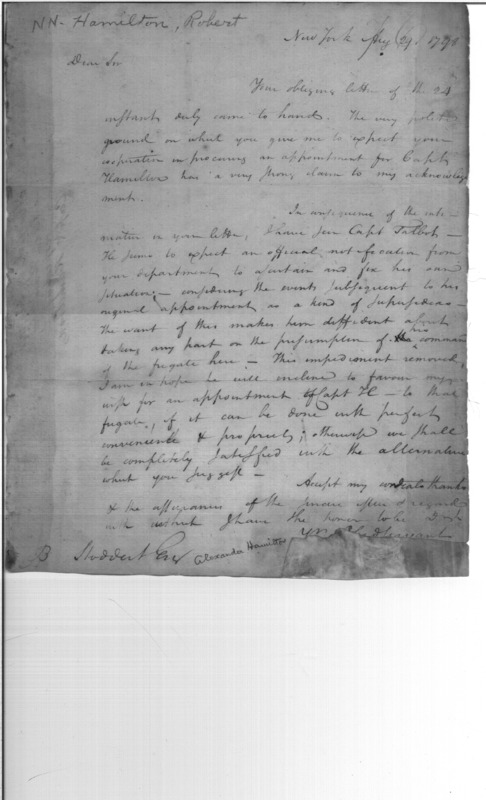 NN- Hamilton, Robert
New York Aug 29. 1798
Dear Sir
Your obliging letter of the 24
instant duly came to hand. The very polite
ground on which you give me to expect your
cooperation in procuring an appointment for Capt
Hamilton has a very strong claim to my acknowledg
ments.
In consequence of the inti-
mation in your letter, I have seen Capt Talbot -
He seems to expect an official notification from
your department to ascertain and fix his
situation - considering the events subsequent to his
original appointment as a kind of supersedeas -
The want of this makes him diffident about
taking any part on the presumption of his command
of the frigate here - This impediment removed,
I am in hope he will incline to favour my
wish for an appointment of Capt H - to that
frigate, if it can be done with perfect
convenience & propriety; otherwise we shall
be completely satisfied with the alternative
which you suggest -
Accept my cordial thanks
& the assurances of the sincere esteem & regard
with which I have the honor to be Dr Sir
Yr Obed Servant
B Stoddert Esq Alexander Hamilton